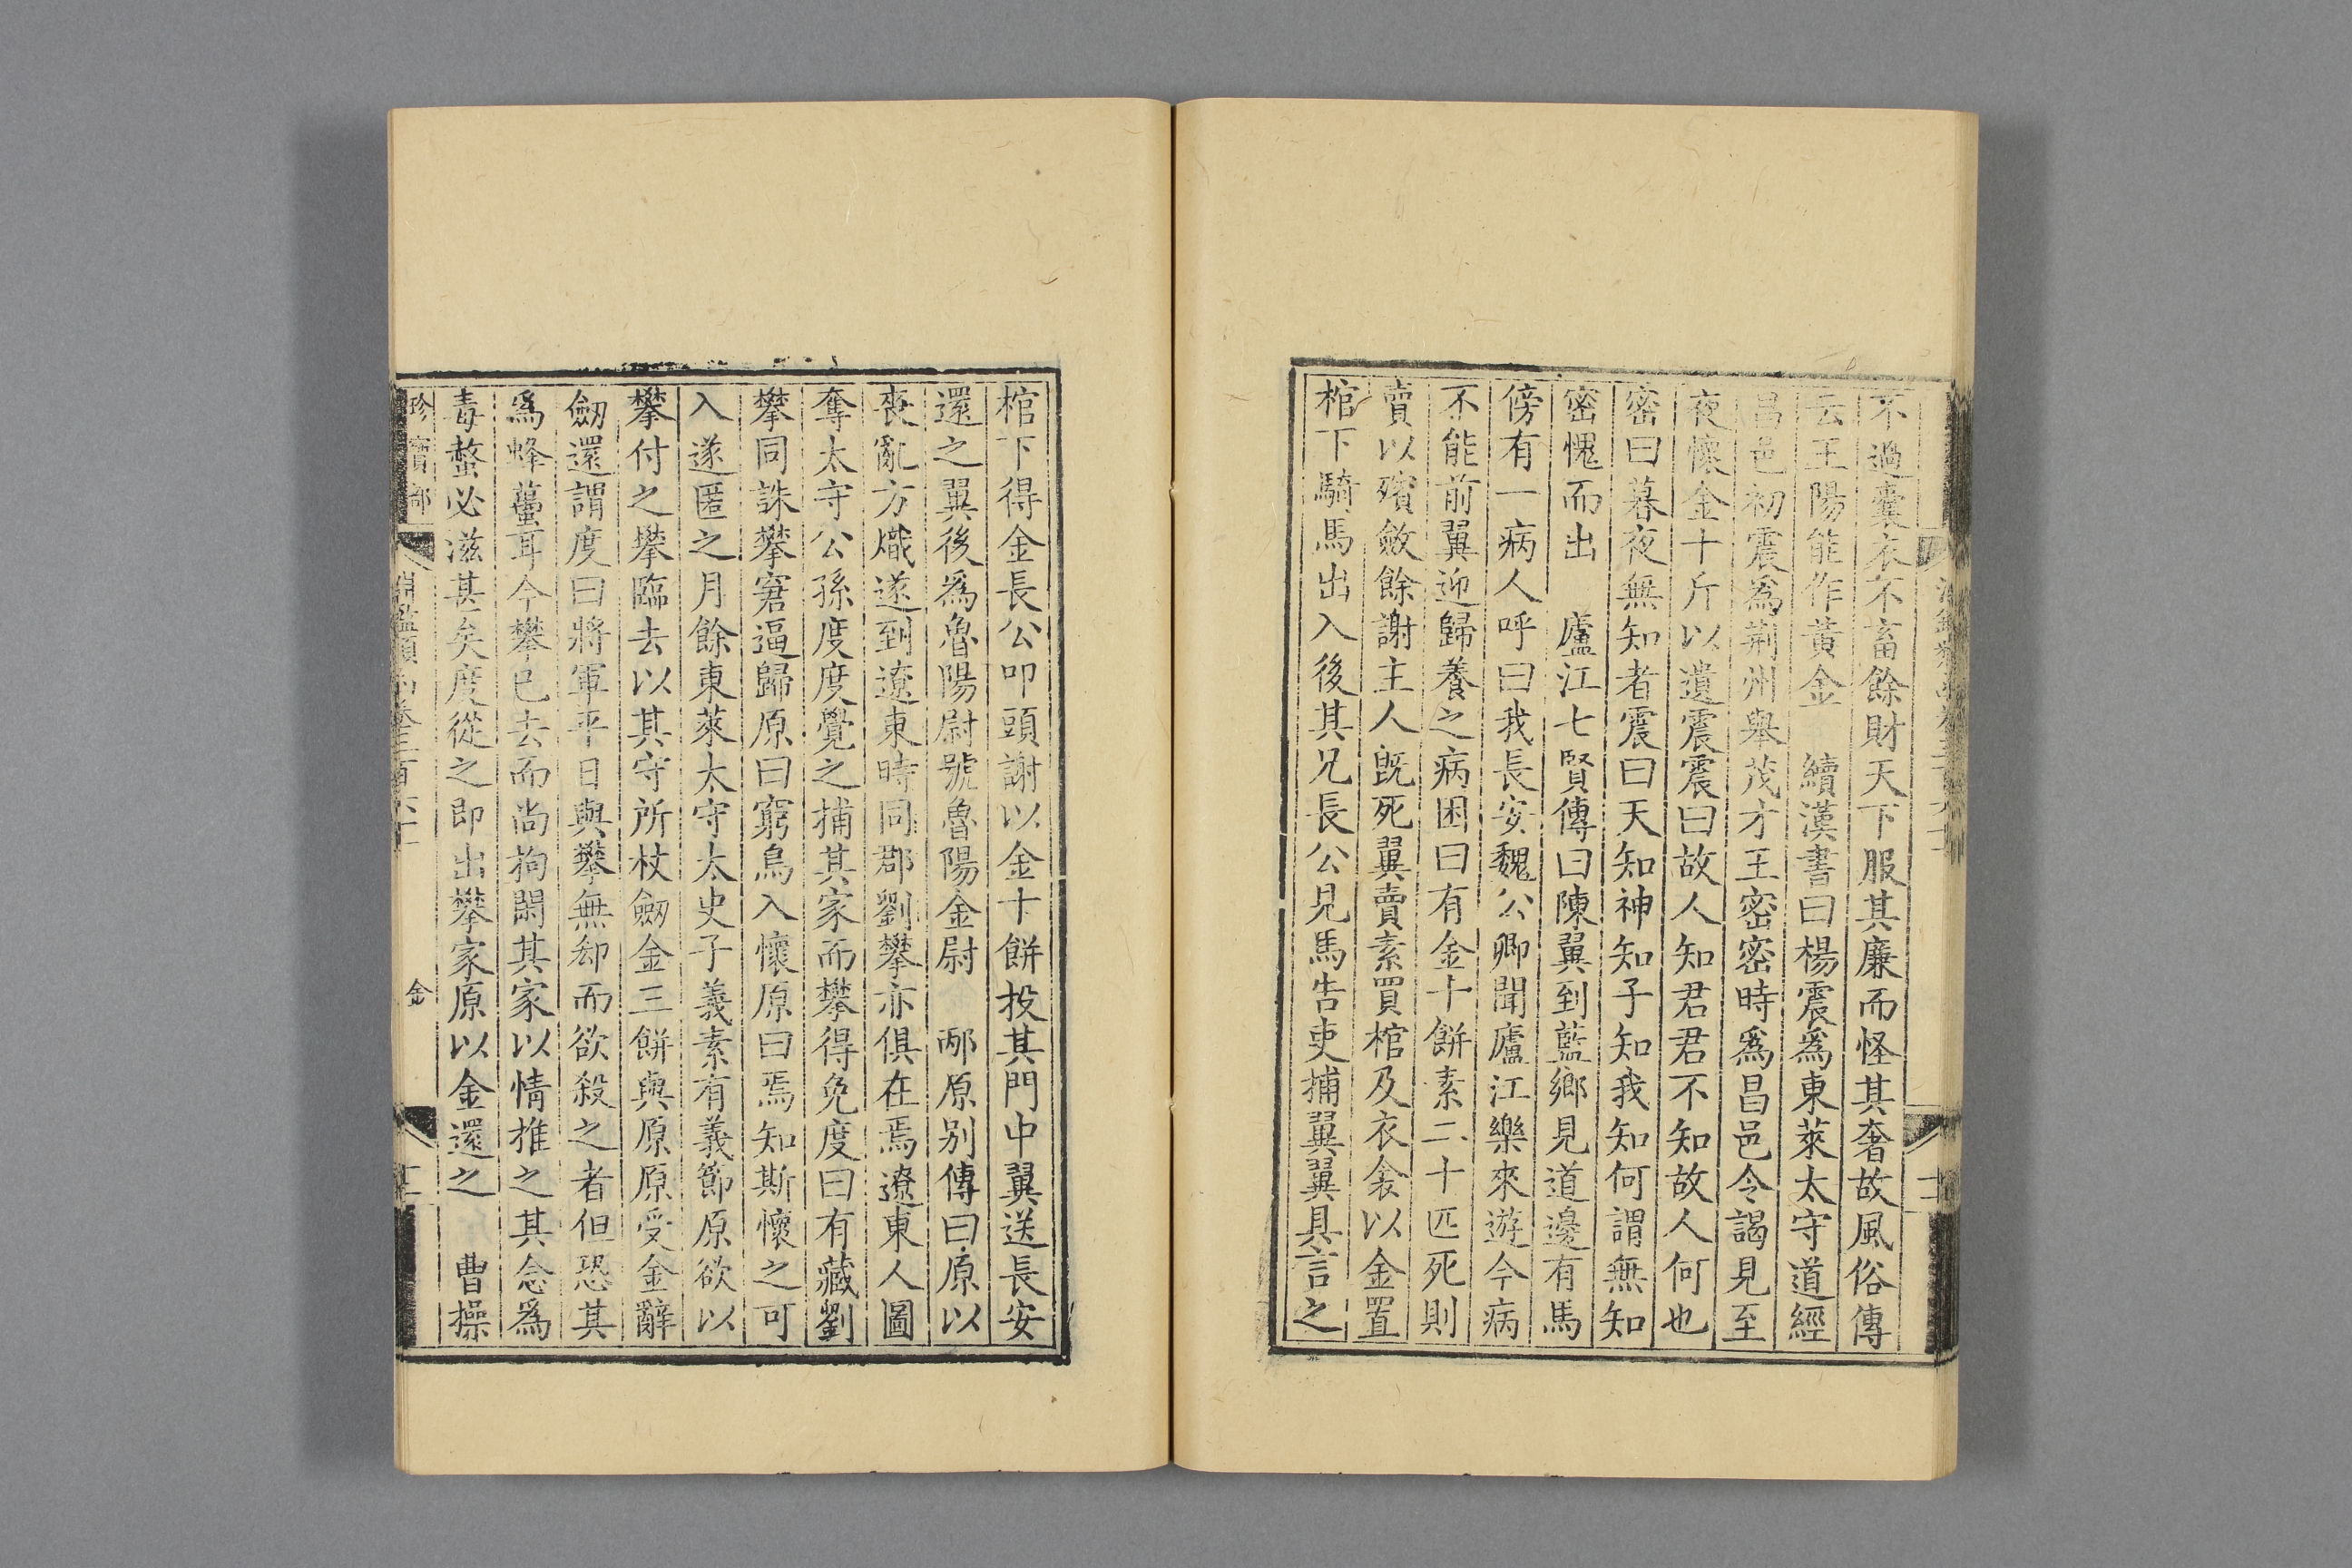 不過囊衣不畜餘財天下服其廉而怪其奢故風俗傳
云王陽能作黃金　續漢書曰楊震爲東萊太守道經
昌邑初震爲荆州舉茂才王密密時爲昌邑令謁見至
夜懷金十斤以遺震震曰故人知君君不知故人何也
密曰暮夜無知者震曰天知神知子知我知何謂無知
密愧而出　廬江七賢傳曰陳翼到藍鄉見道邊有馬
傍有一病人呼曰我長安魏公卿聞廬江樂來遊今病
不能前翼迎歸養之病困曰有金十餅素二十匹死則
賣以殯斂餘謝主人旣死翼賣素買棺及衣衾以金置
棺下騎馬出入後其兄長公見馬告吏捕翼翼具言之
棺下得金長公叩頭謝以金十餅投其門中翼送長安
還之翼後爲魯陽尉號魯陽金尉　邴原别傳曰原以
喪亂方熾遂到遼東時同郡劉攀亦俱在焉遼東人圖
奪太守公孫度度覺之捕其家而攀得免度曰有藏劉
攀同誅攀窘逼歸原曰窮鳥入懷原曰焉知斯懷之可
入遂匿之月餘東萊太守太史子義素有義節原欲以
攀付之攀臨去以其守所杖劒金三餅與原原受金辭
劒還謂度曰將軍平日與攀無却而欲殺之者但恐其
爲蜂蠆耳今攀已去而尚拘閑其家以情推之其念爲
毒螫必滋甚矣度從之即出攀家原以金還之　曹操
珍寶部　淵鑑類函卷三百六十一　金　十二